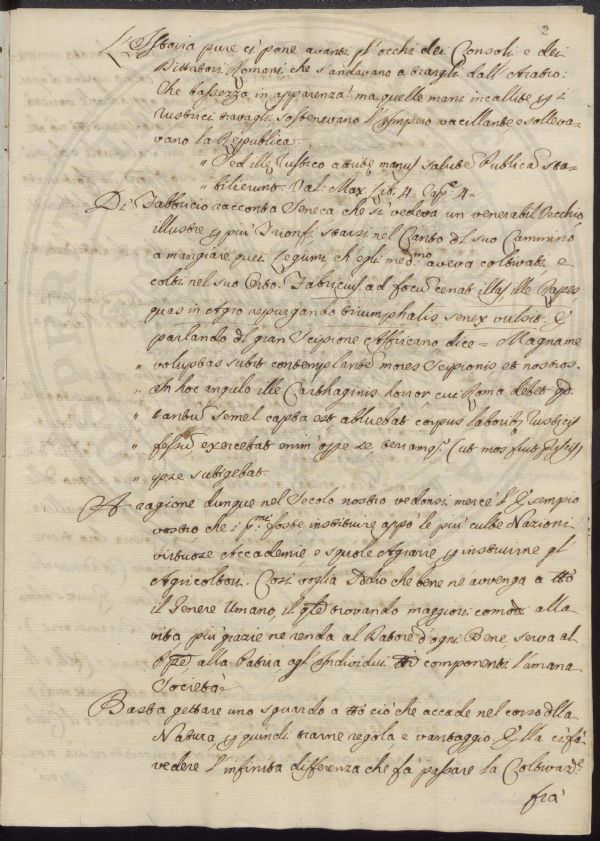 2
L'Istoria pure ci pone avanti gl'occhi dei Consoli e dei
Dittatori Romani, che s'andavano a trargli dall'Aratro:
Che bassezza in apparenza! ma quelle mani incallite p i
rustici travagli sostenevano l'Impero vacillante e solleva-
vano la Republica.
" Sed illę rustico attritę manus salutē Publicā sta-
" bilierunt. Val: Max. Lib. 4. Cap.º 4.
Di Fabbricio racconta Seneca che si vedeva un venerabil Vecchio
illustre p più Trionfi, starsi nel Canto dl suo Cammino
a mangiare quei Legumi, ch'egli med.mo aveva coltivati, e
colti nel suo Orto. Fabricius ad focū cenat illas ipse Rapes
quas in Agro repurgando triumphalis senex vulsit. E
parlando dl gran Scipione Affricano dice = Magna me
" voluptas subit contemplantē mores Scipionis et nostros.
" In hoc angulo ille Carthaginis horror cui Roma debet qd
" tantū semel capta est abluebat corpus laboribꝫ rusticis
" fessū, exercebat enim opere se, terramqꝫ (ut mos fuit Priscis)
" ipse subigebat.
A ragione dunque nel Secolo nostro vedonsi mercè l'Esempio
vostro che i p.mi foste, instituire appò le più culte Nazioni
virtuose Accademie, e scuole Agrarie p instruirne gl'
Agricoltori. Così voglia Ddio che bene ne avvenga a tt̄o
il Genere Umano, il qle trovando maggiori comodi alla
vita più grazie ne renda al Datore d'ogni Bene, serva al
Ppe, alla Patria agl'Individui tt̄i componenti l'umana
Società.
Basta gettare uno sguardo a tt̄o ciò che accade nel corso dlla
Natura, p quindi trarne regola, e vantaggio. Ella ci fà
vedere l'infinita differenza che fa passare la Coltivaz.e
frà